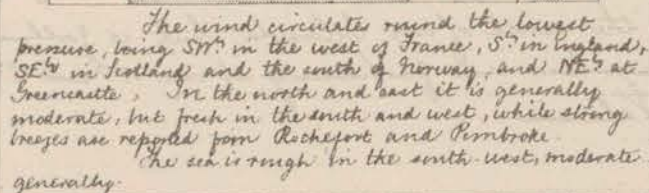 The wind circulates round the lowest
pressure, being SWly in the west of France, Sly in England,
SEly in Scotland and the south of Norway, and NEly at
Greencastle. In the north and east it is generally
moderate, but fresh in the south and west, while strong
breezes are reported from Rochefort and Pembroke.
The sea is rough in the south-west, moderate
generally.